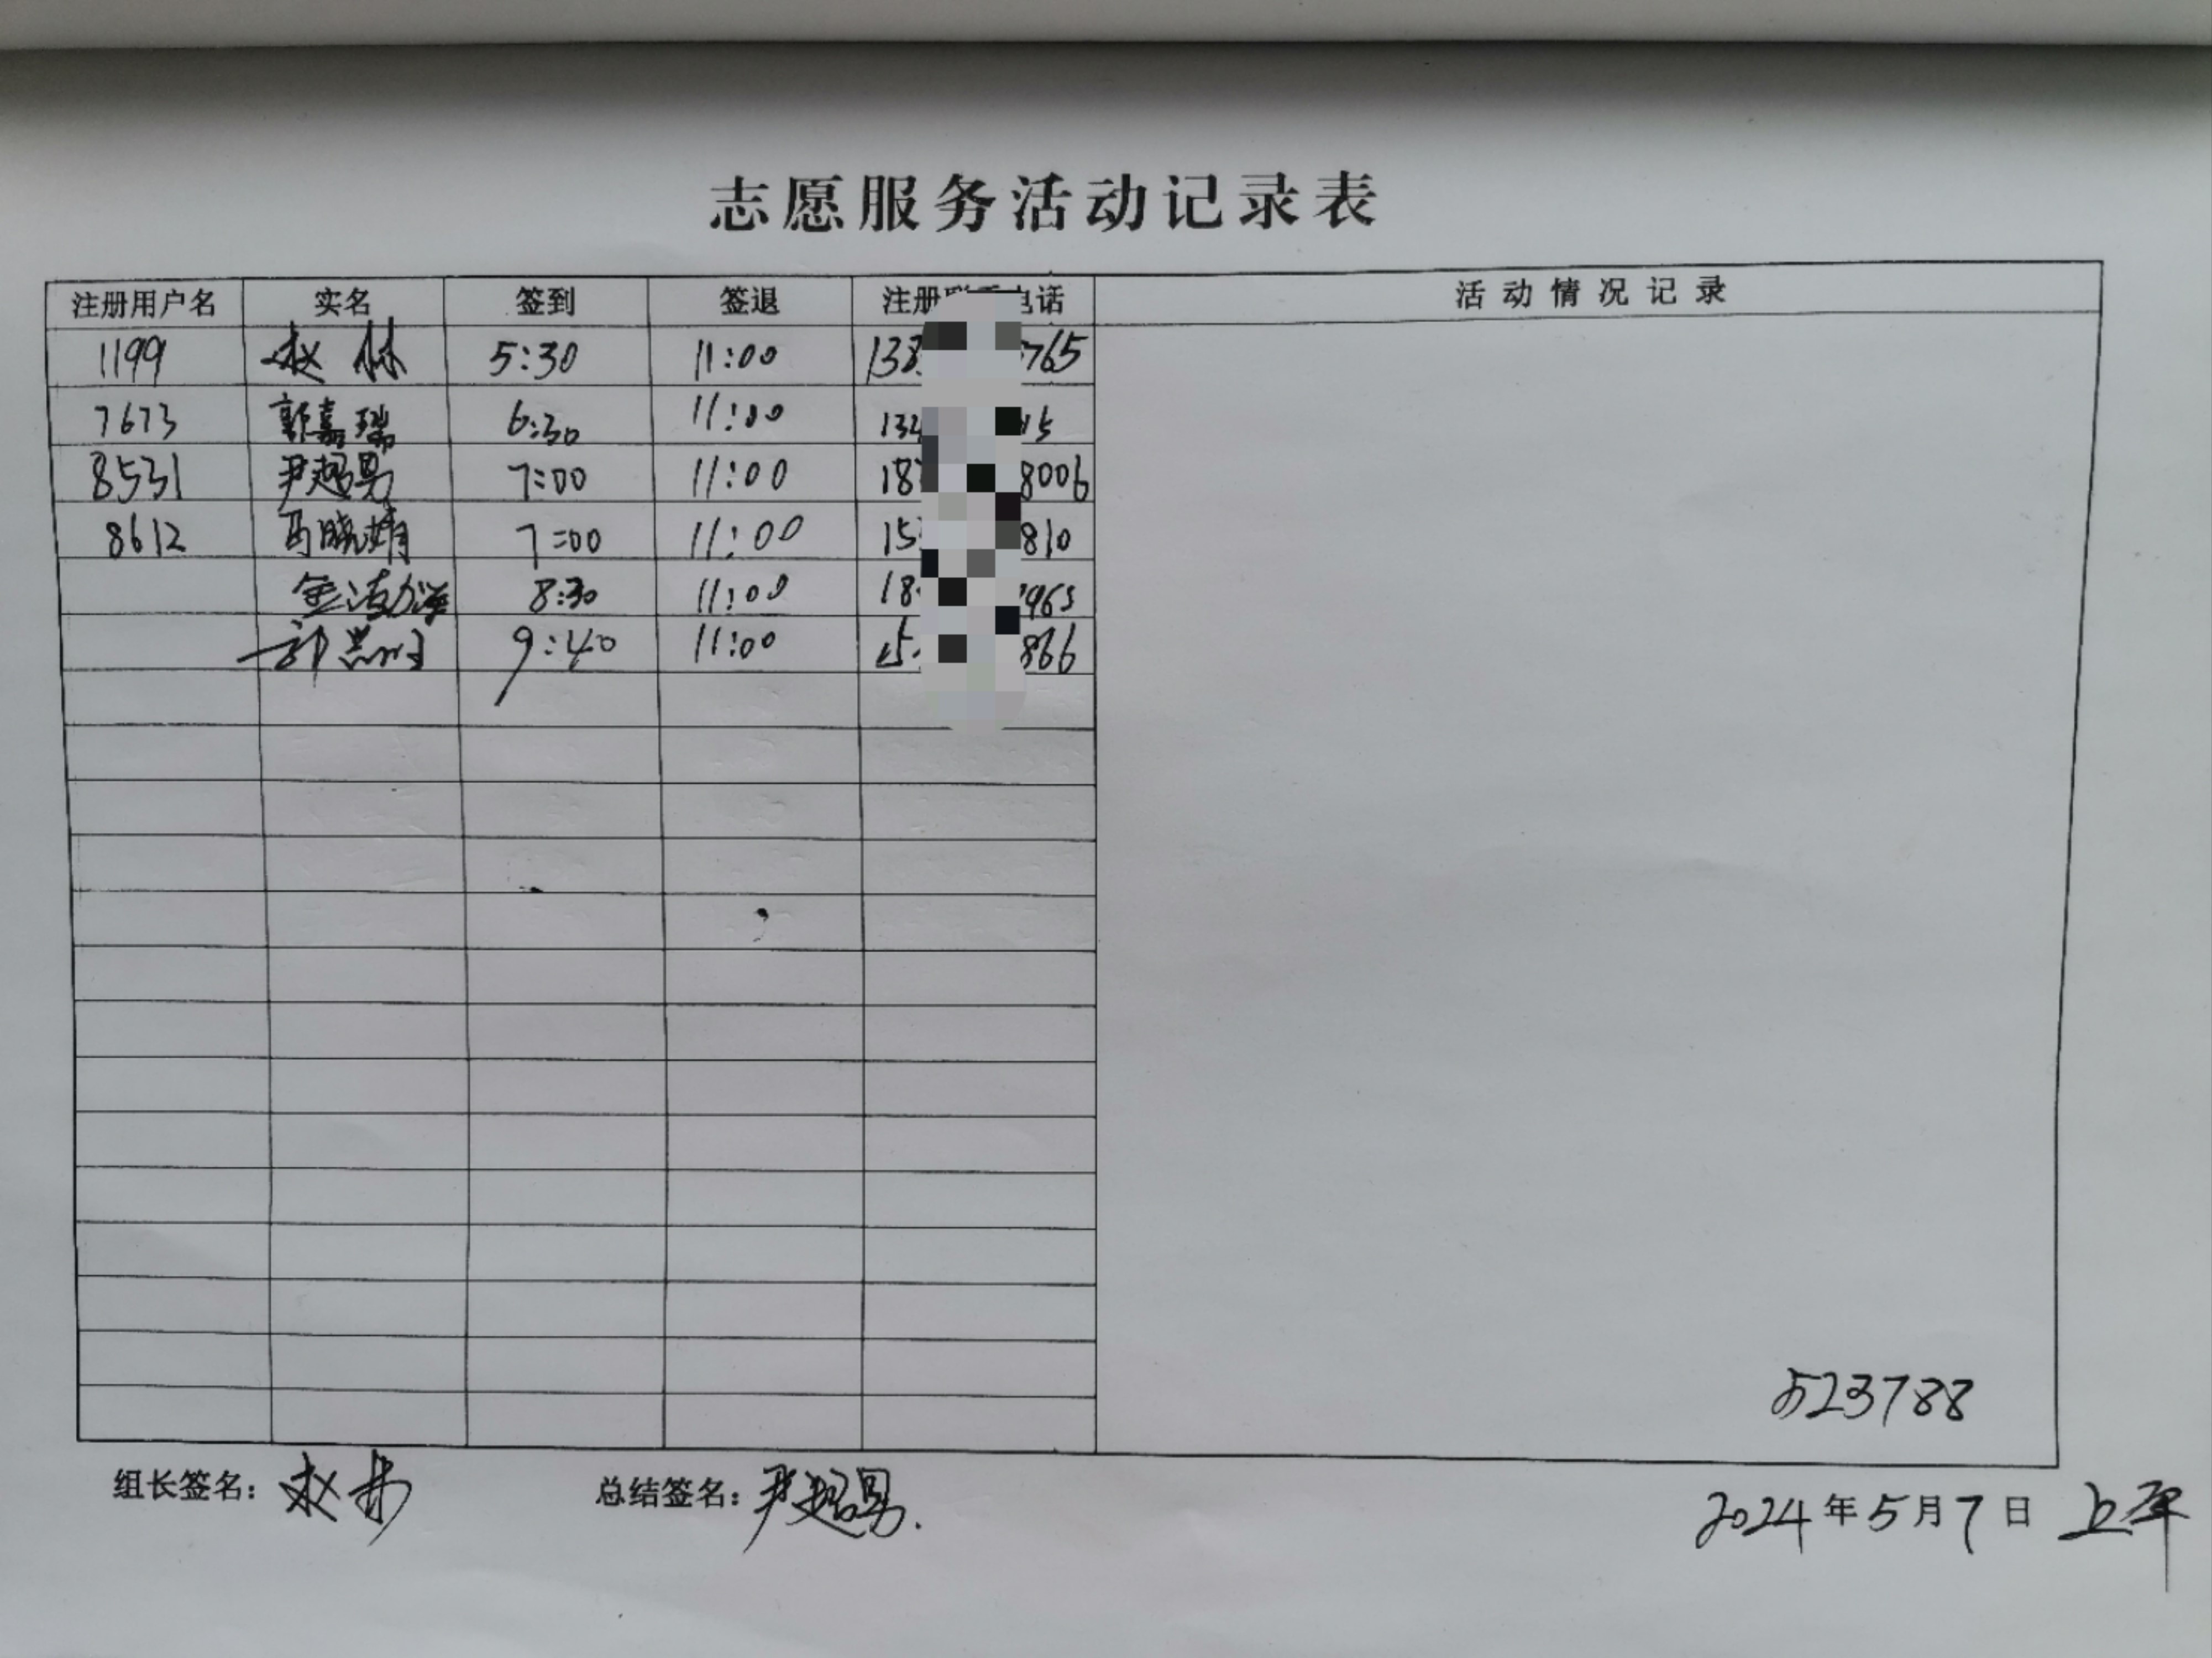 志愿服务活动记录表
注册用户名 实名 签到 签退 注册 电话 活动情况记录
1199 赵 林 5:30 11:00 138 765
7673 郭嘉瑞 6:30 11:00 132 15
8531 尹超男 7:00 11:00 187 8006
8612 马晓婧 7:00 11:00 15 810
8:30 11:00 18 965
9:40 11:00 15 866
523788
组长签名: 赵 总结签名: 尹超男.
2024年5月7日 上午